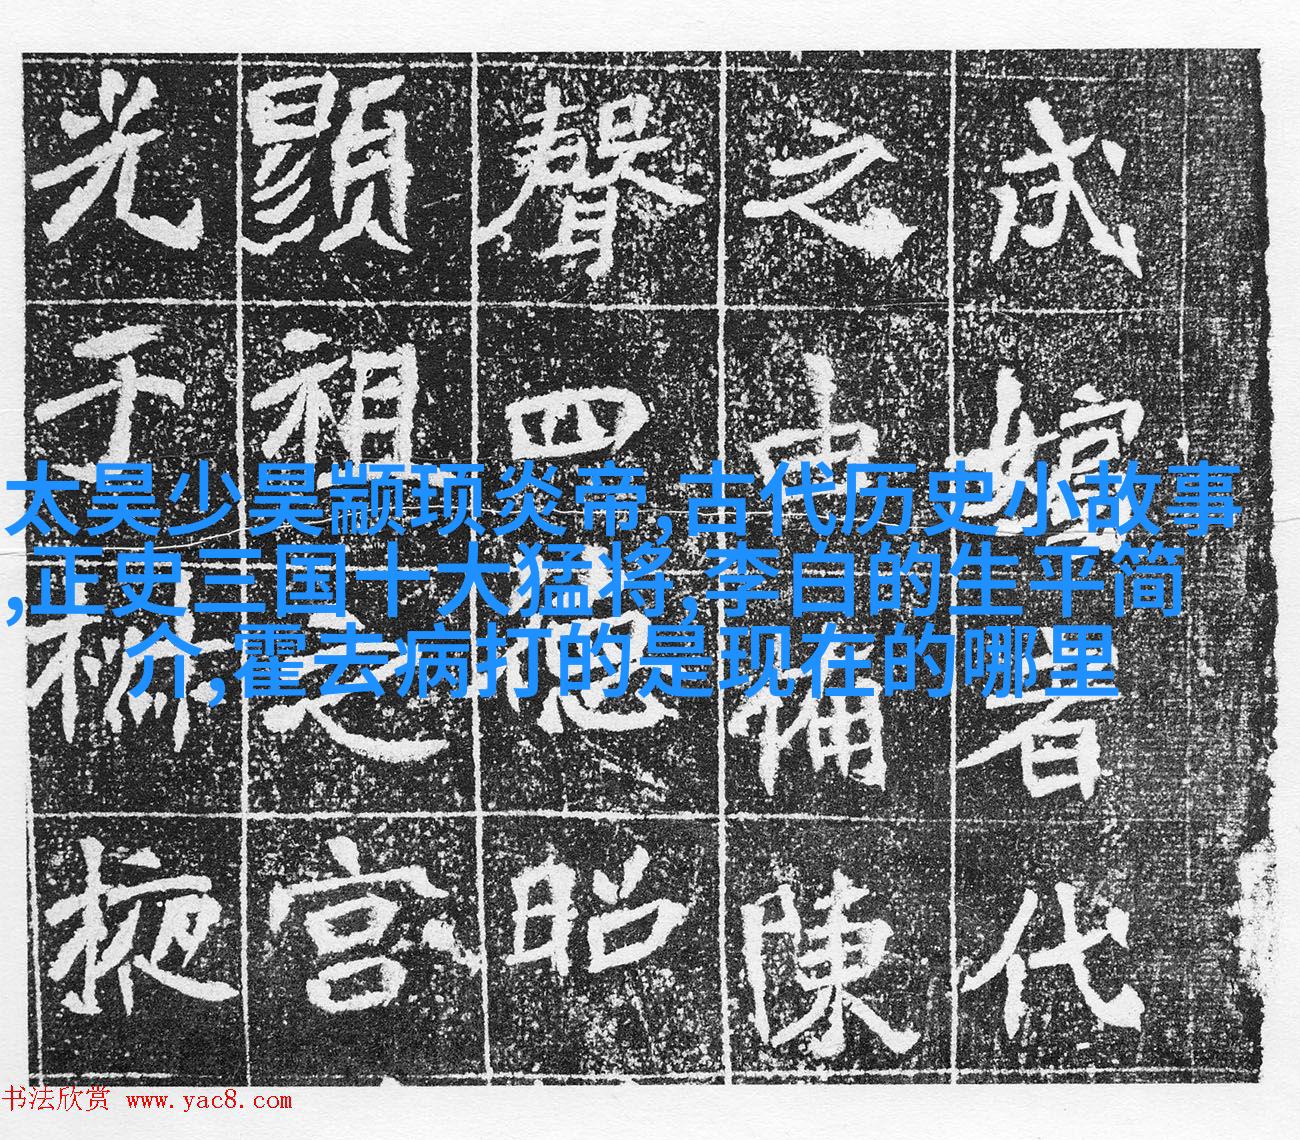 太昊少昊颛顼炎帝,古代历史小故事
,正史三国十大猛将,李白的生平简
介,霍去病打的是现在的哪里
嬪代
之陳
聲四德昭
顯祖之宮
光于掖
书法欣赏 www.yac8.com